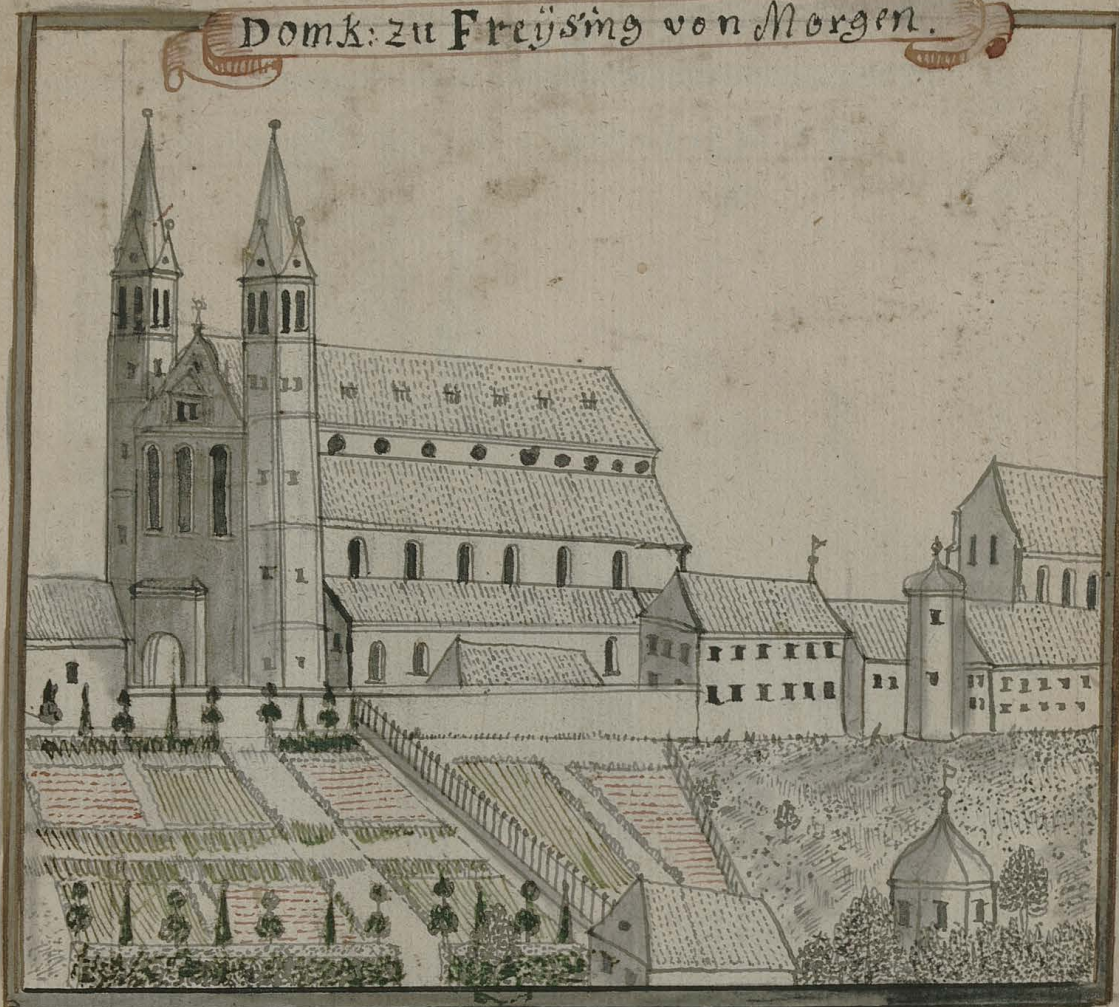 Domk: zu Freÿsing von Morgen.